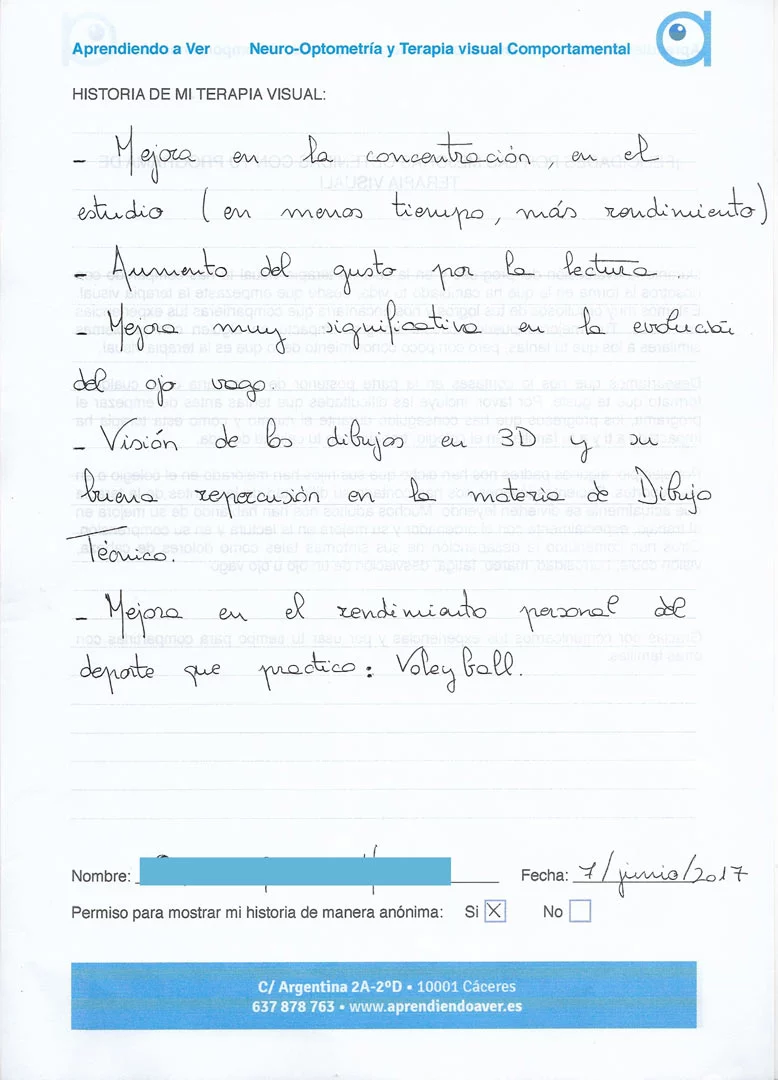 Aprendiendo a Ver Neuro-Optometría y Terapia visual Comportamental
HISTORIA DE MI TERAPIA VISUAL:
- Mejora en la concentración, en el
estudio (en menos tiempo, más rendimiento)
- Aumento del gusto por la lectura.
- Mejora muy significativa en la evolución
del ojo vago.
- Visión de los dibujos en 3D y su
buena repercusión en la materia de Dibujo
Técnico.
- Mejora en el rendimiento personal del
deporte que practico: Voleyball.
Nombre:
Fecha: 7/junio/2017
Permiso para mostrar mi historia de manera anónima: Si X No
C/ Argentina 2A-2ºD • 10001 Cáceres
637 878 763 • www.aprendiendoaver.es